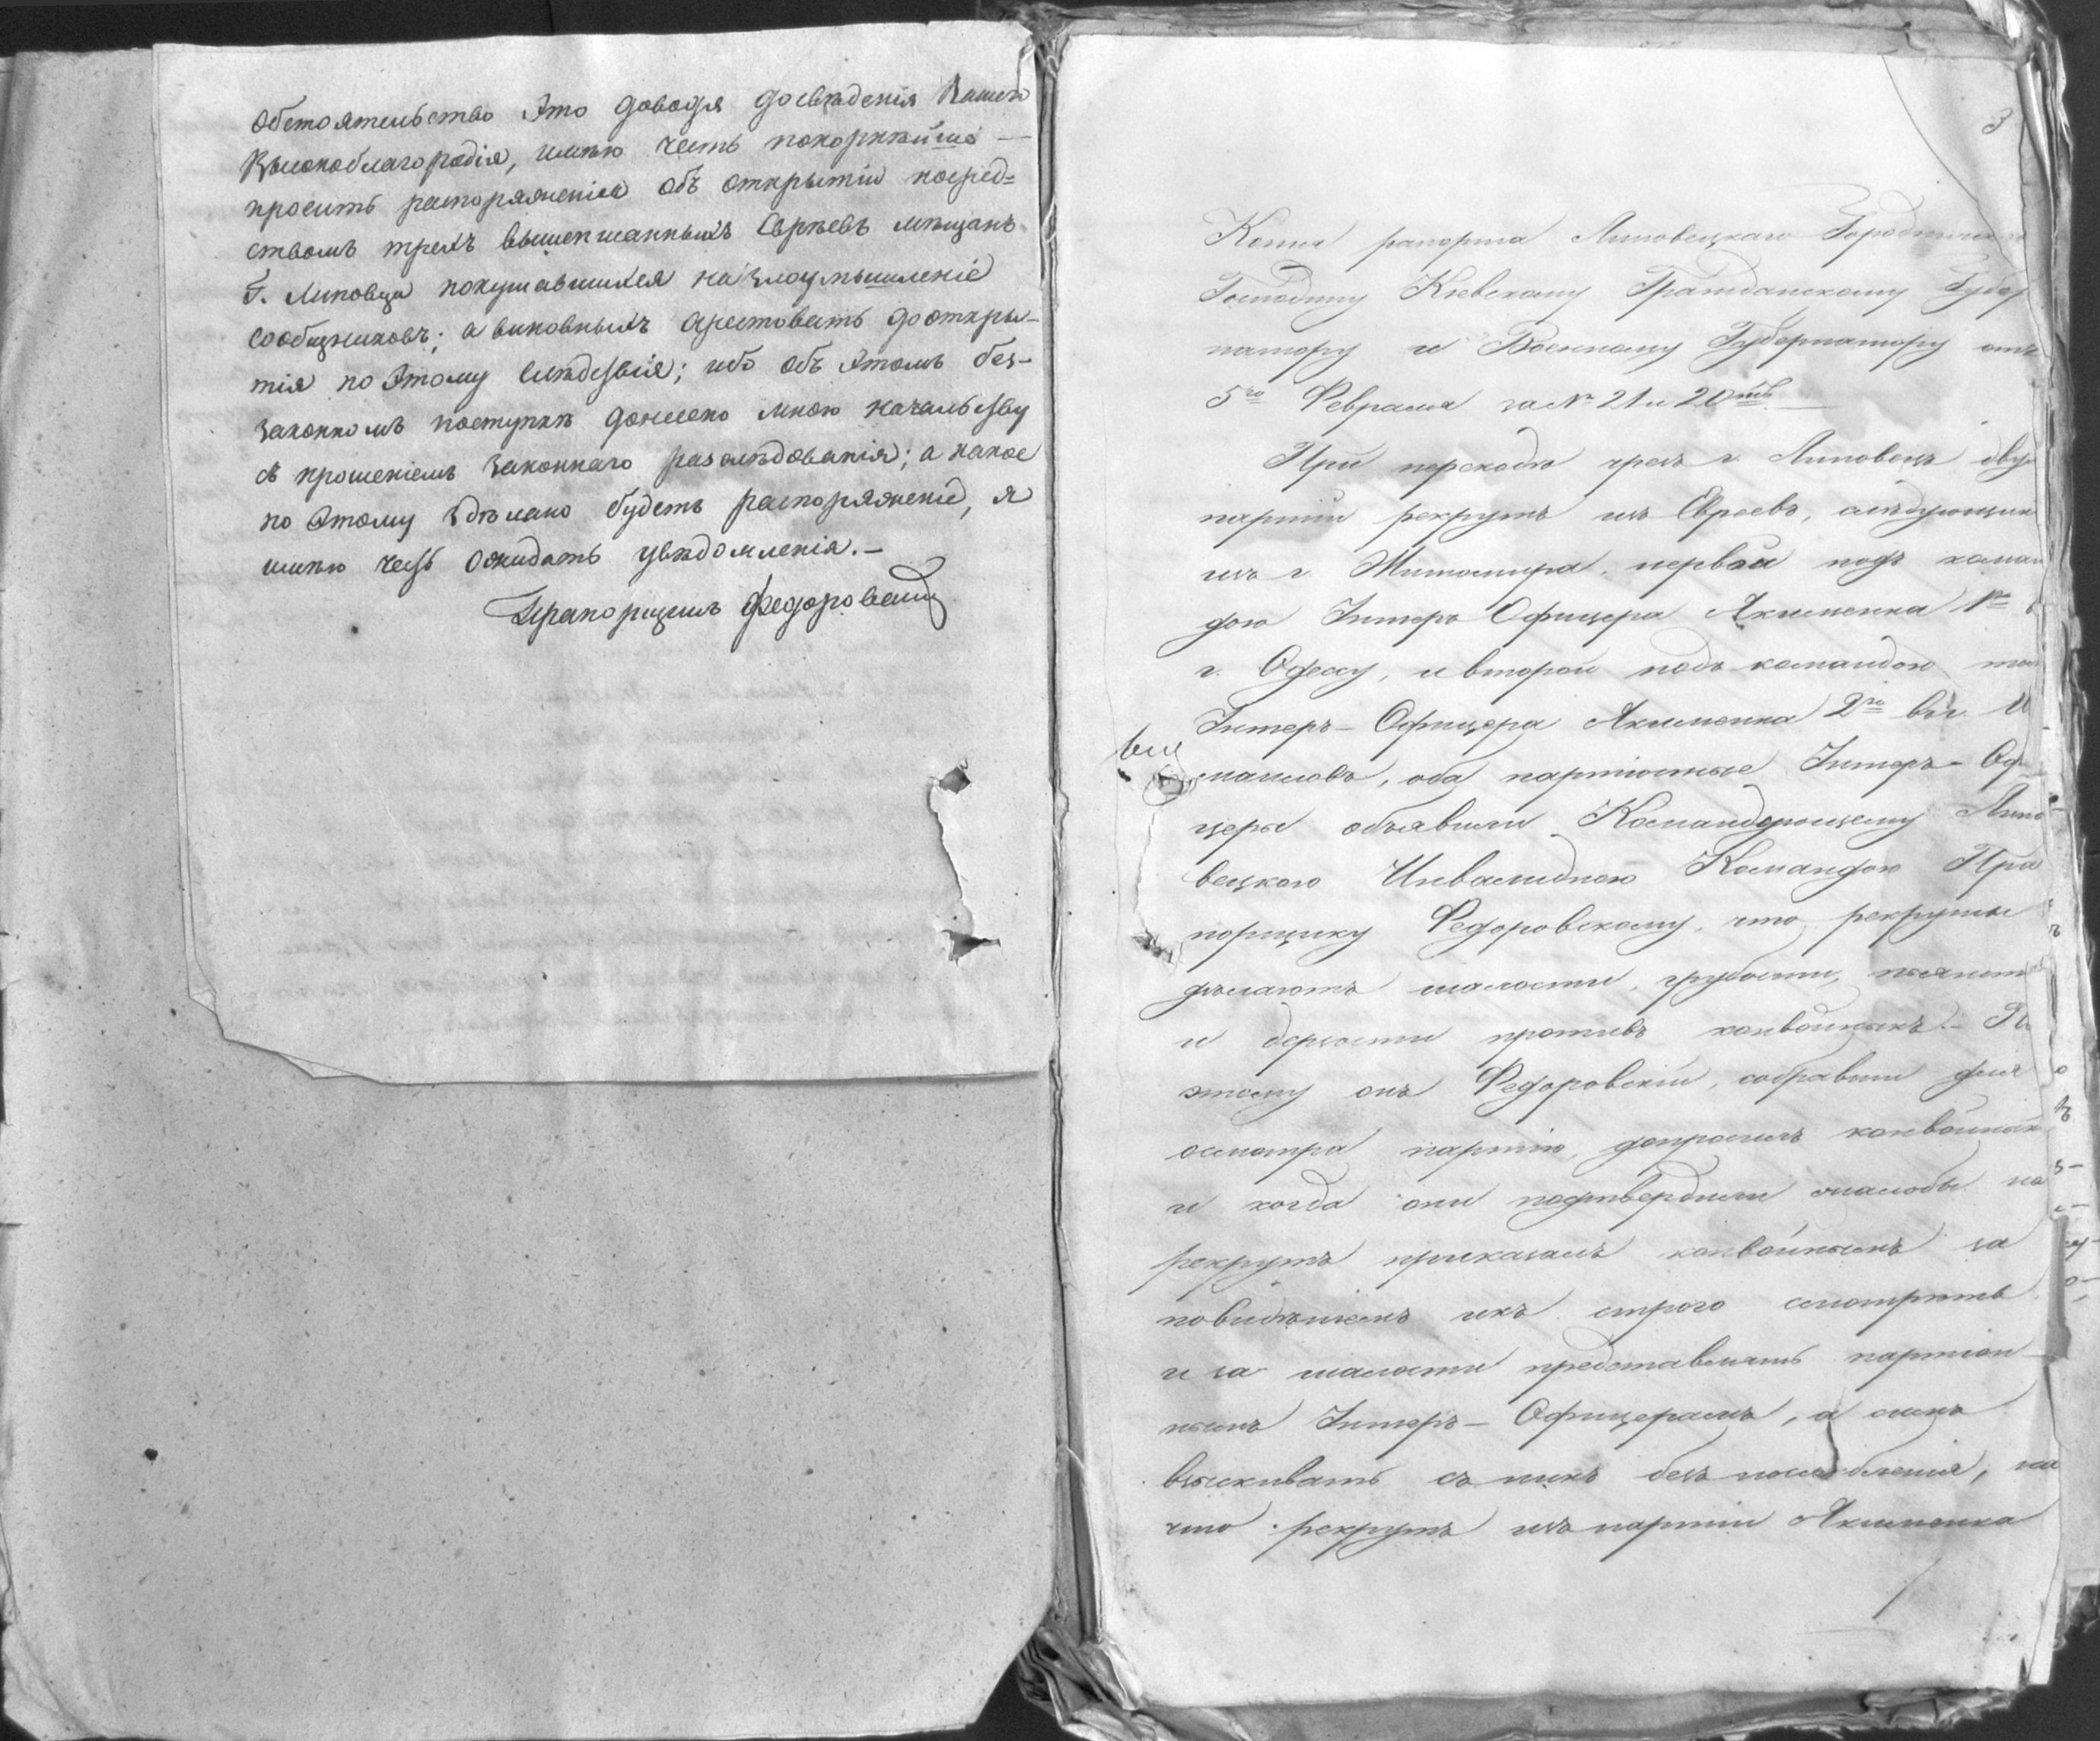 Обстоятельство это доводя до свѣденія Вашего
Высокоблагородія, имѣю честь покорнѣйше —
просить распоряженія объ открытіи посред=
ствомъ трехъ вышеписанныхъ Евреевъ мѣщанъ
Г. Липовца покушавшихся на злоумышленіе
сообщниковъ; а виновныхъ арестовать до откры-
тія по этому слѣдствія; ибо объ этомъ без-
законномъ поступкѣ донесено мною начальству
съ прошеніемъ законнаго разслѣдованія; а какое
по этому здѣлано будетъ распоряженіе, я
имѣю честь ожидать увѣдомленія. —
Прапорщикъ Федоровскій
3
Копія рапорта Липовецкаго Городничаго
Господину Кіевскому Гражданскому Губер
натору и Военному Губернатору отъ
5го Февраля за № 21 и 20мъ —
При переходѣ чрезъ г. Липовецъ двухъ
партій рекрутъ изъ Евреевъ, слѣдующихъ
изъ г. Житомира, первой подъ коман
дою Унтеръ Офицера Якименка 1го в
г. Одессу, и второй подъ командою
Унтеръ-Офицера Якименка 2го въ г. И
змаиловъ, оба партіонные Унтеръ-Оф
церы объявили Командующему Липо
вецкою Инвалидною Командою Пра
порщику Федоровскому, что рекруты
дѣлаютъ шалости, грубости, пьянст
и дерзости противъ конвойныхъ. — По
этому онъ Федоровскій, собравши для
осмотра партію, допросилъ конвойныхъ
и когда они подтвердили жалобы на
рекрутъ приказалъ конвойнымъ за
повидѣніемъ ихъ строго смотрѣть
и за шалости представлять партіон
нымъ Унтеръ-Офицерамъ, а симъ
взыскивать съ нихъ безъ послабленія, на
что рекрутъ изъ партіи Якименка